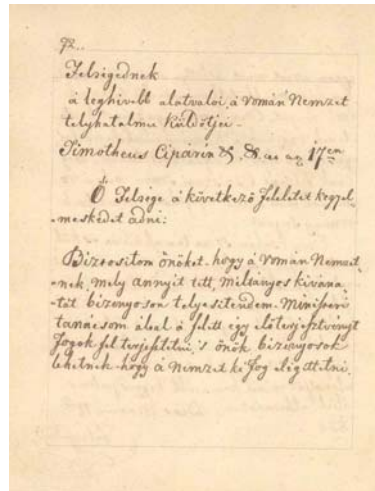 72..
Felségednek
a leghivebb alatvaloi, a Román Nemzet
telyhatalmu Küldötjei -
Timotheus Cipáriu &, &. 17en
Ő Felsége a következő feleletet kegyel-
-meskedet adni:
Bizтositom önöket, hogy a Román Nemzet-
-nek, mely annyit tett, miltányos kivána-
-tát bizonyoson telyesitendem. Ministeri
tanácsom által a felett egy előterjesztvényt
fogok fel terjesztetni, 's önök bizonyosok
lehetnek, hogy a Nemzet ki fog elégittetni.